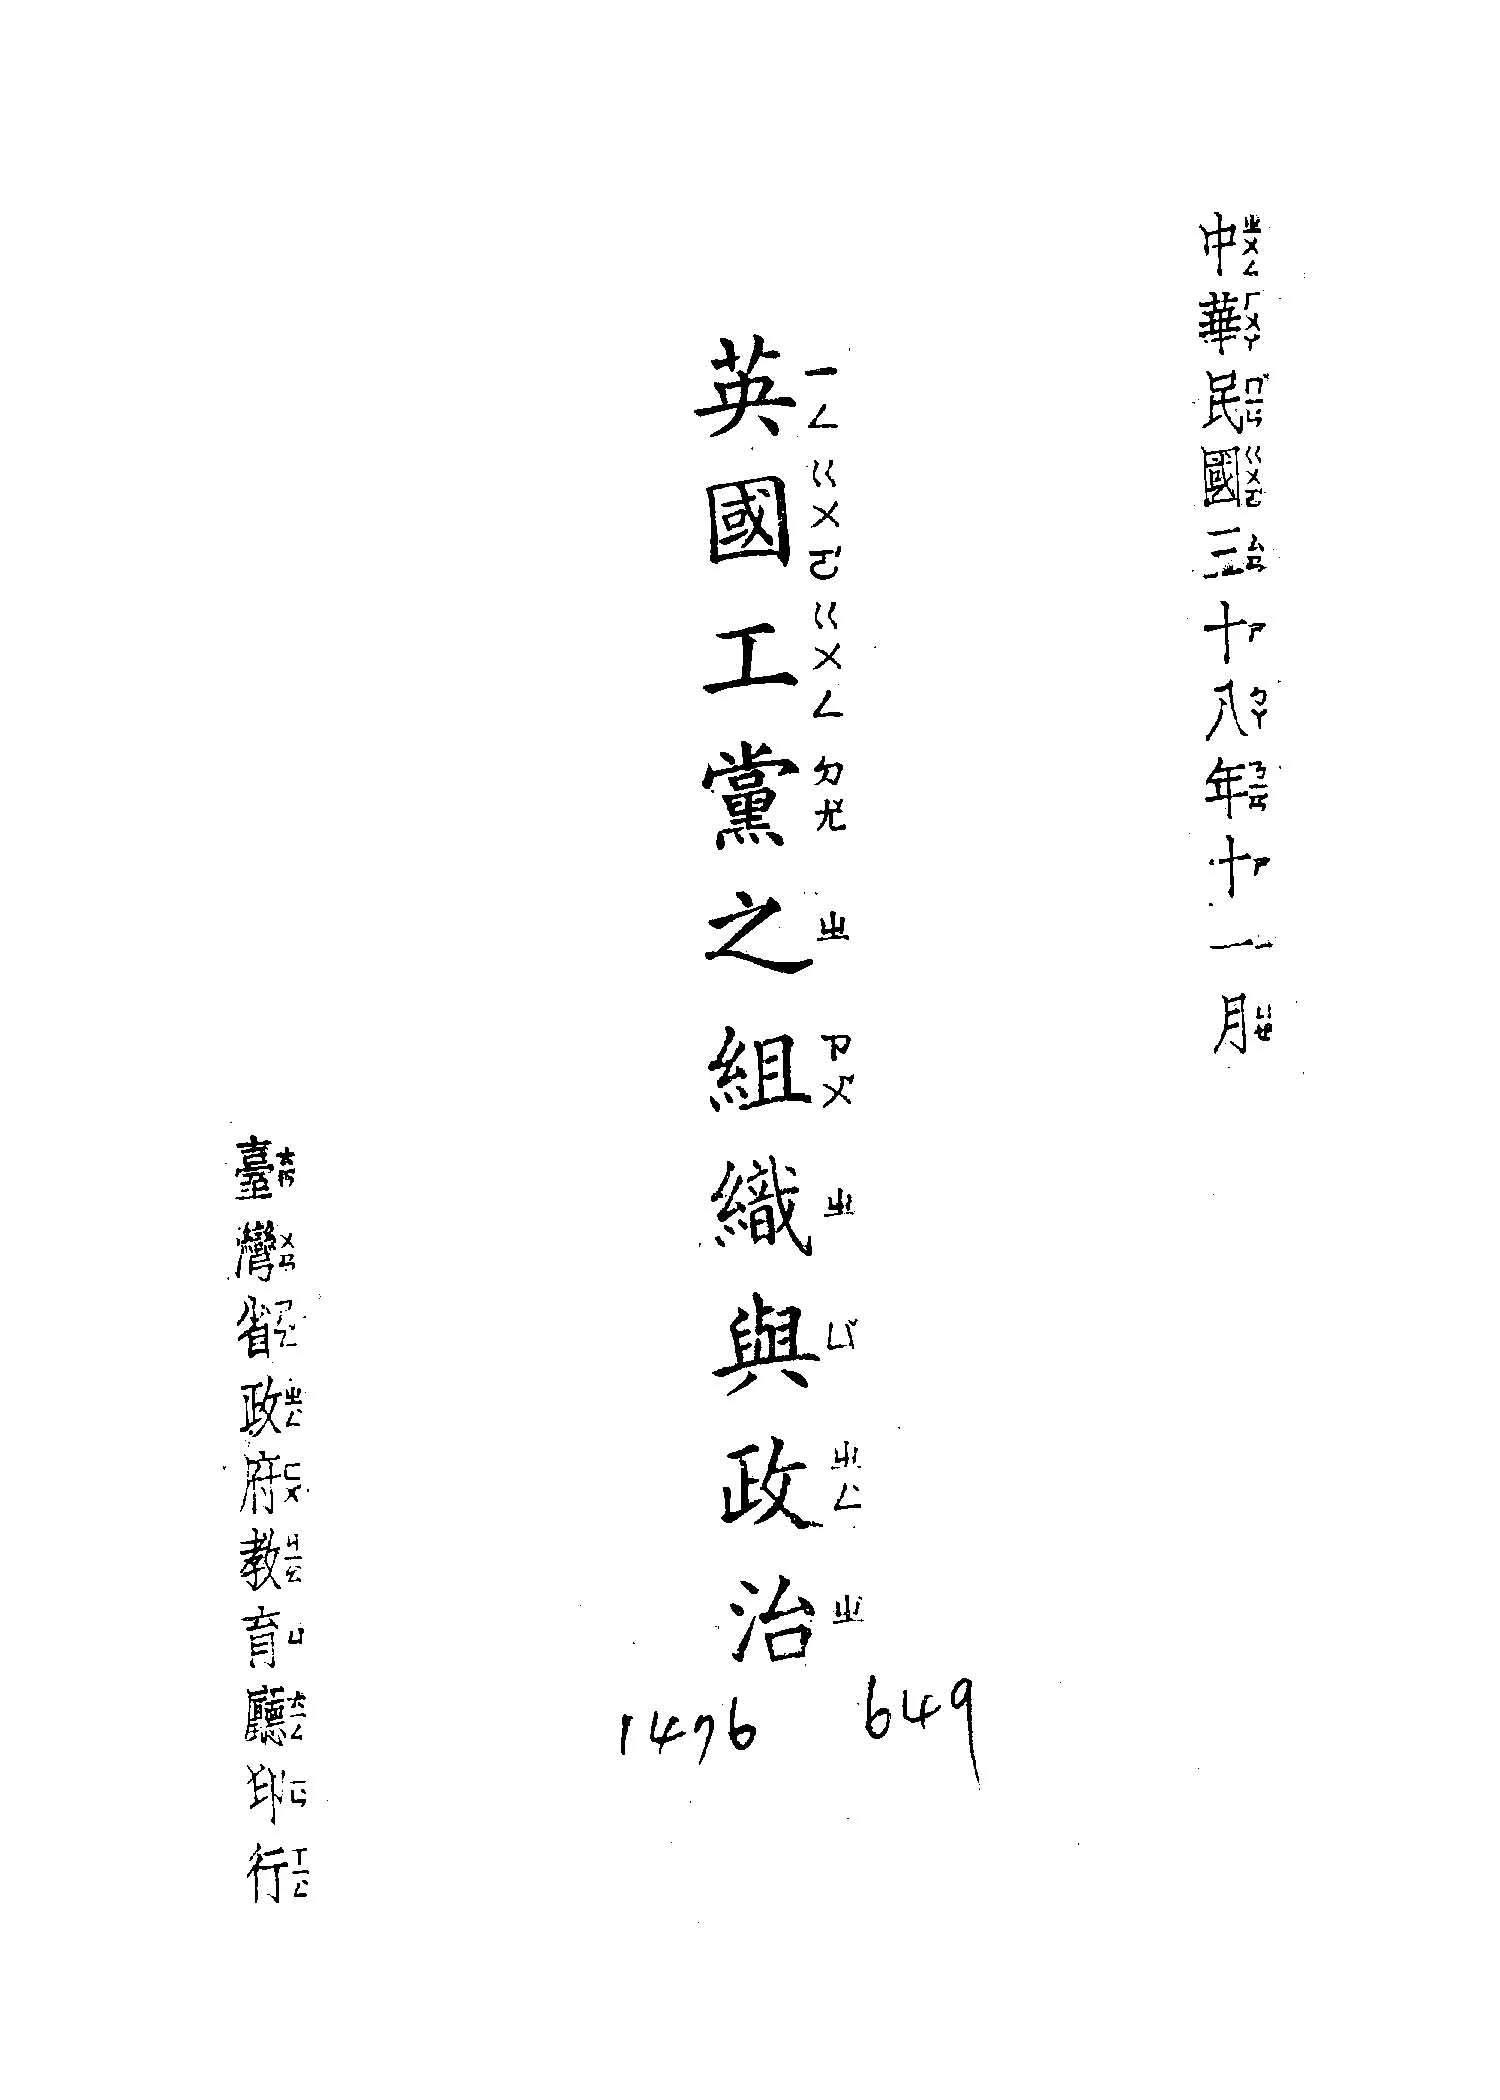 中華民國三十八年十一月
英國工黨之組織與政治
1476 649
臺灣省政府教育廳印行